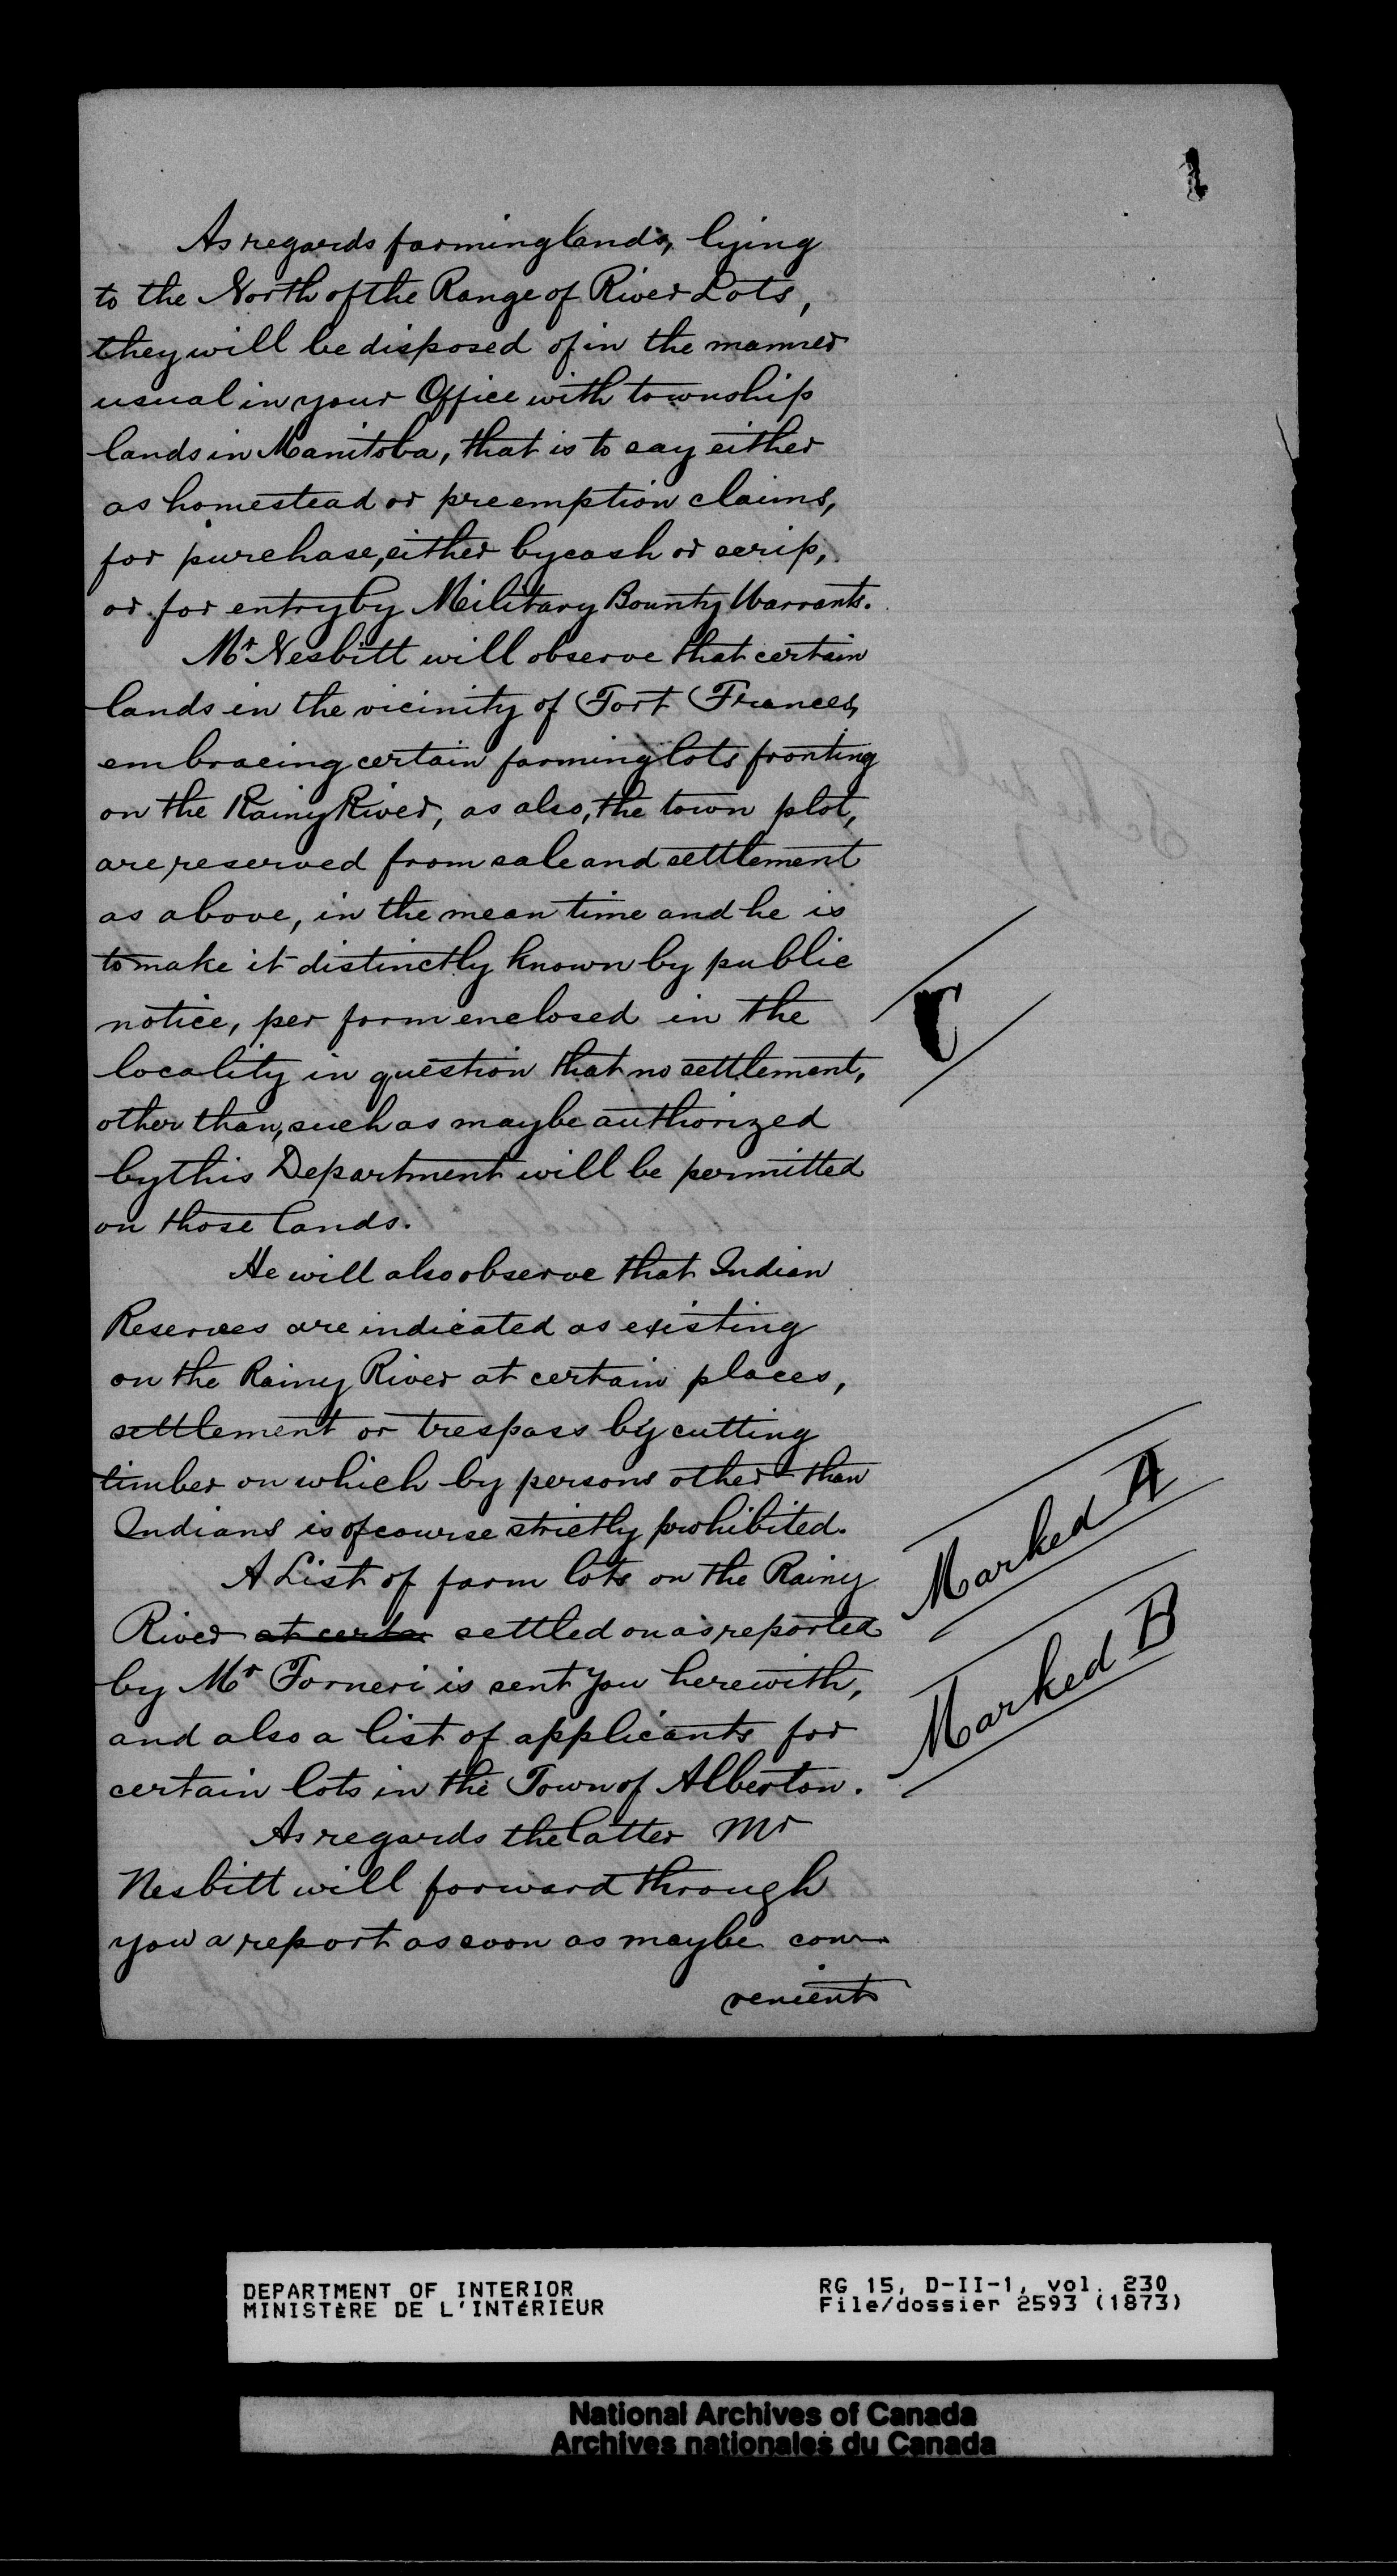 1
As regards farming lands, lying
to the North of the Range of River Lots,
they will be disposed of in the manner
usual in your Office with township
lands in Manitoba, that is to say either
as homestead or preemption claims,
for purchase, either by cash or scrip,
or for entry by Military Bounty Warrants.
Mr Nesbitt will observe that certain
lands in the vicinity of Fort Frances,
embracing certain farming lots fronting
on the Rainy River, as also, the town plot,
are reserved from sale and settlement
as above, in the mean time and he is
to make it distinctly known by public
notice, per form enclosed in the
C
locality in question that no settlement,
other than, such as may be authorized
by this Department will be permitted
on those lands.
He will also observe that Indian
Reserves are indicated as existing
on the Rainy River at certain places,
settlement or trespass by cutting
timber on which by persons other than
Indians is of course strictly prohibited.
A List of farm lots on the Rainy
Marked A
River at certa settled on as reported
by Mr Forneri is sent you herewith,
Marked B
and also a list of applicants for
certain lots in the Town of Alberton.
As regards the latter Mr
Nesbitt will forward through
you a report as soon as may be con-
venient
DEPARTMENT OF INTERIOR
MINISTÈRE DE L'INTÉRIEUR
RG 15, D-II-1, vol. 230
File/dossier 2593 (1873)
National Archives of Canada
Archives nationales du Canada